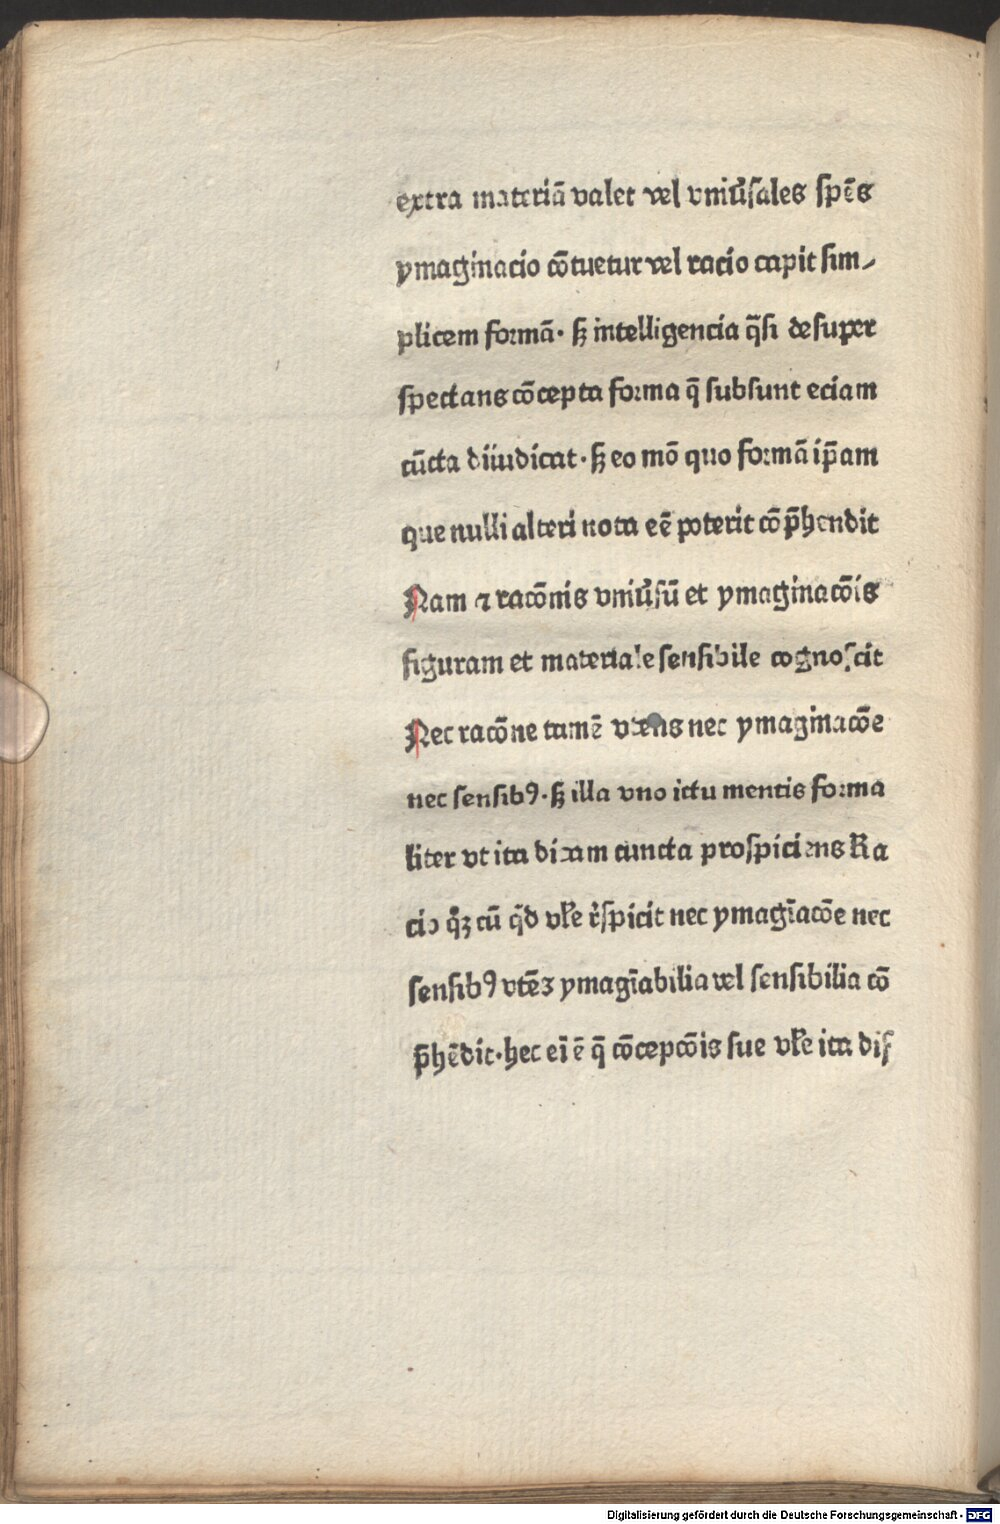 extra materiā valet vel vniu̾sales spēs
ymaginacio cōtuetur vel racio capit sim⸗
plicem formā· sꝫ intelligencia q̄si desuper
spectans cōcepta forma q̄ subsunt eciam
cūcta diiudicat· sꝫ eo mō quo formā ip̄am
que nulli alteri nota eē poterit cōp̄hendit
Nam ⁊ racōnis vniu̾sū et ymaginacōis
figuram et materiale sensibile cognoscit
Nec racōne tamē vtens nec ymaginacōe
nec sensibꝰ· sꝫ illa vno ictu mentis forma
liter vt ita dicam cuncta prospiciens Ra
cio qͦꝫ cū qͥd vl̓e r̾spicit nec ymagīacōe nec
sensibꝰ vtēs ymagīabilia vel sensibilia cō
p̄hēdit· hec ei̅ ē q̄ cōcepcōis sue vl̓e ita dif
Digitalisierung gefördert durch die Deutsche Forschungsgemeinschaft - DFG